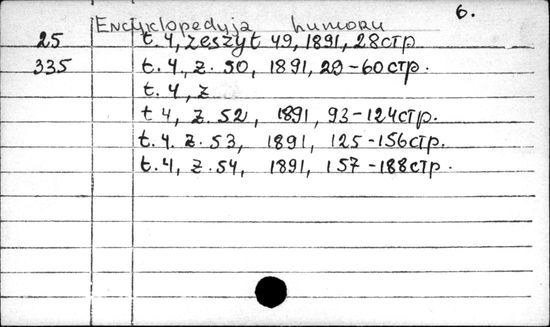 6.
Encyklopedyja humoru
25 t. 4, zeszyt 49, 1891, 28 стр
335 t. 4, z. 50, 1891, 29-60 стр.
t. 4, z
t 4, z. 52, 1891, 93-124 стр.
t. 4. z. 53, 1891, 125-156 стр.
t. 4, z. 54, 1891, 157-188 стр.